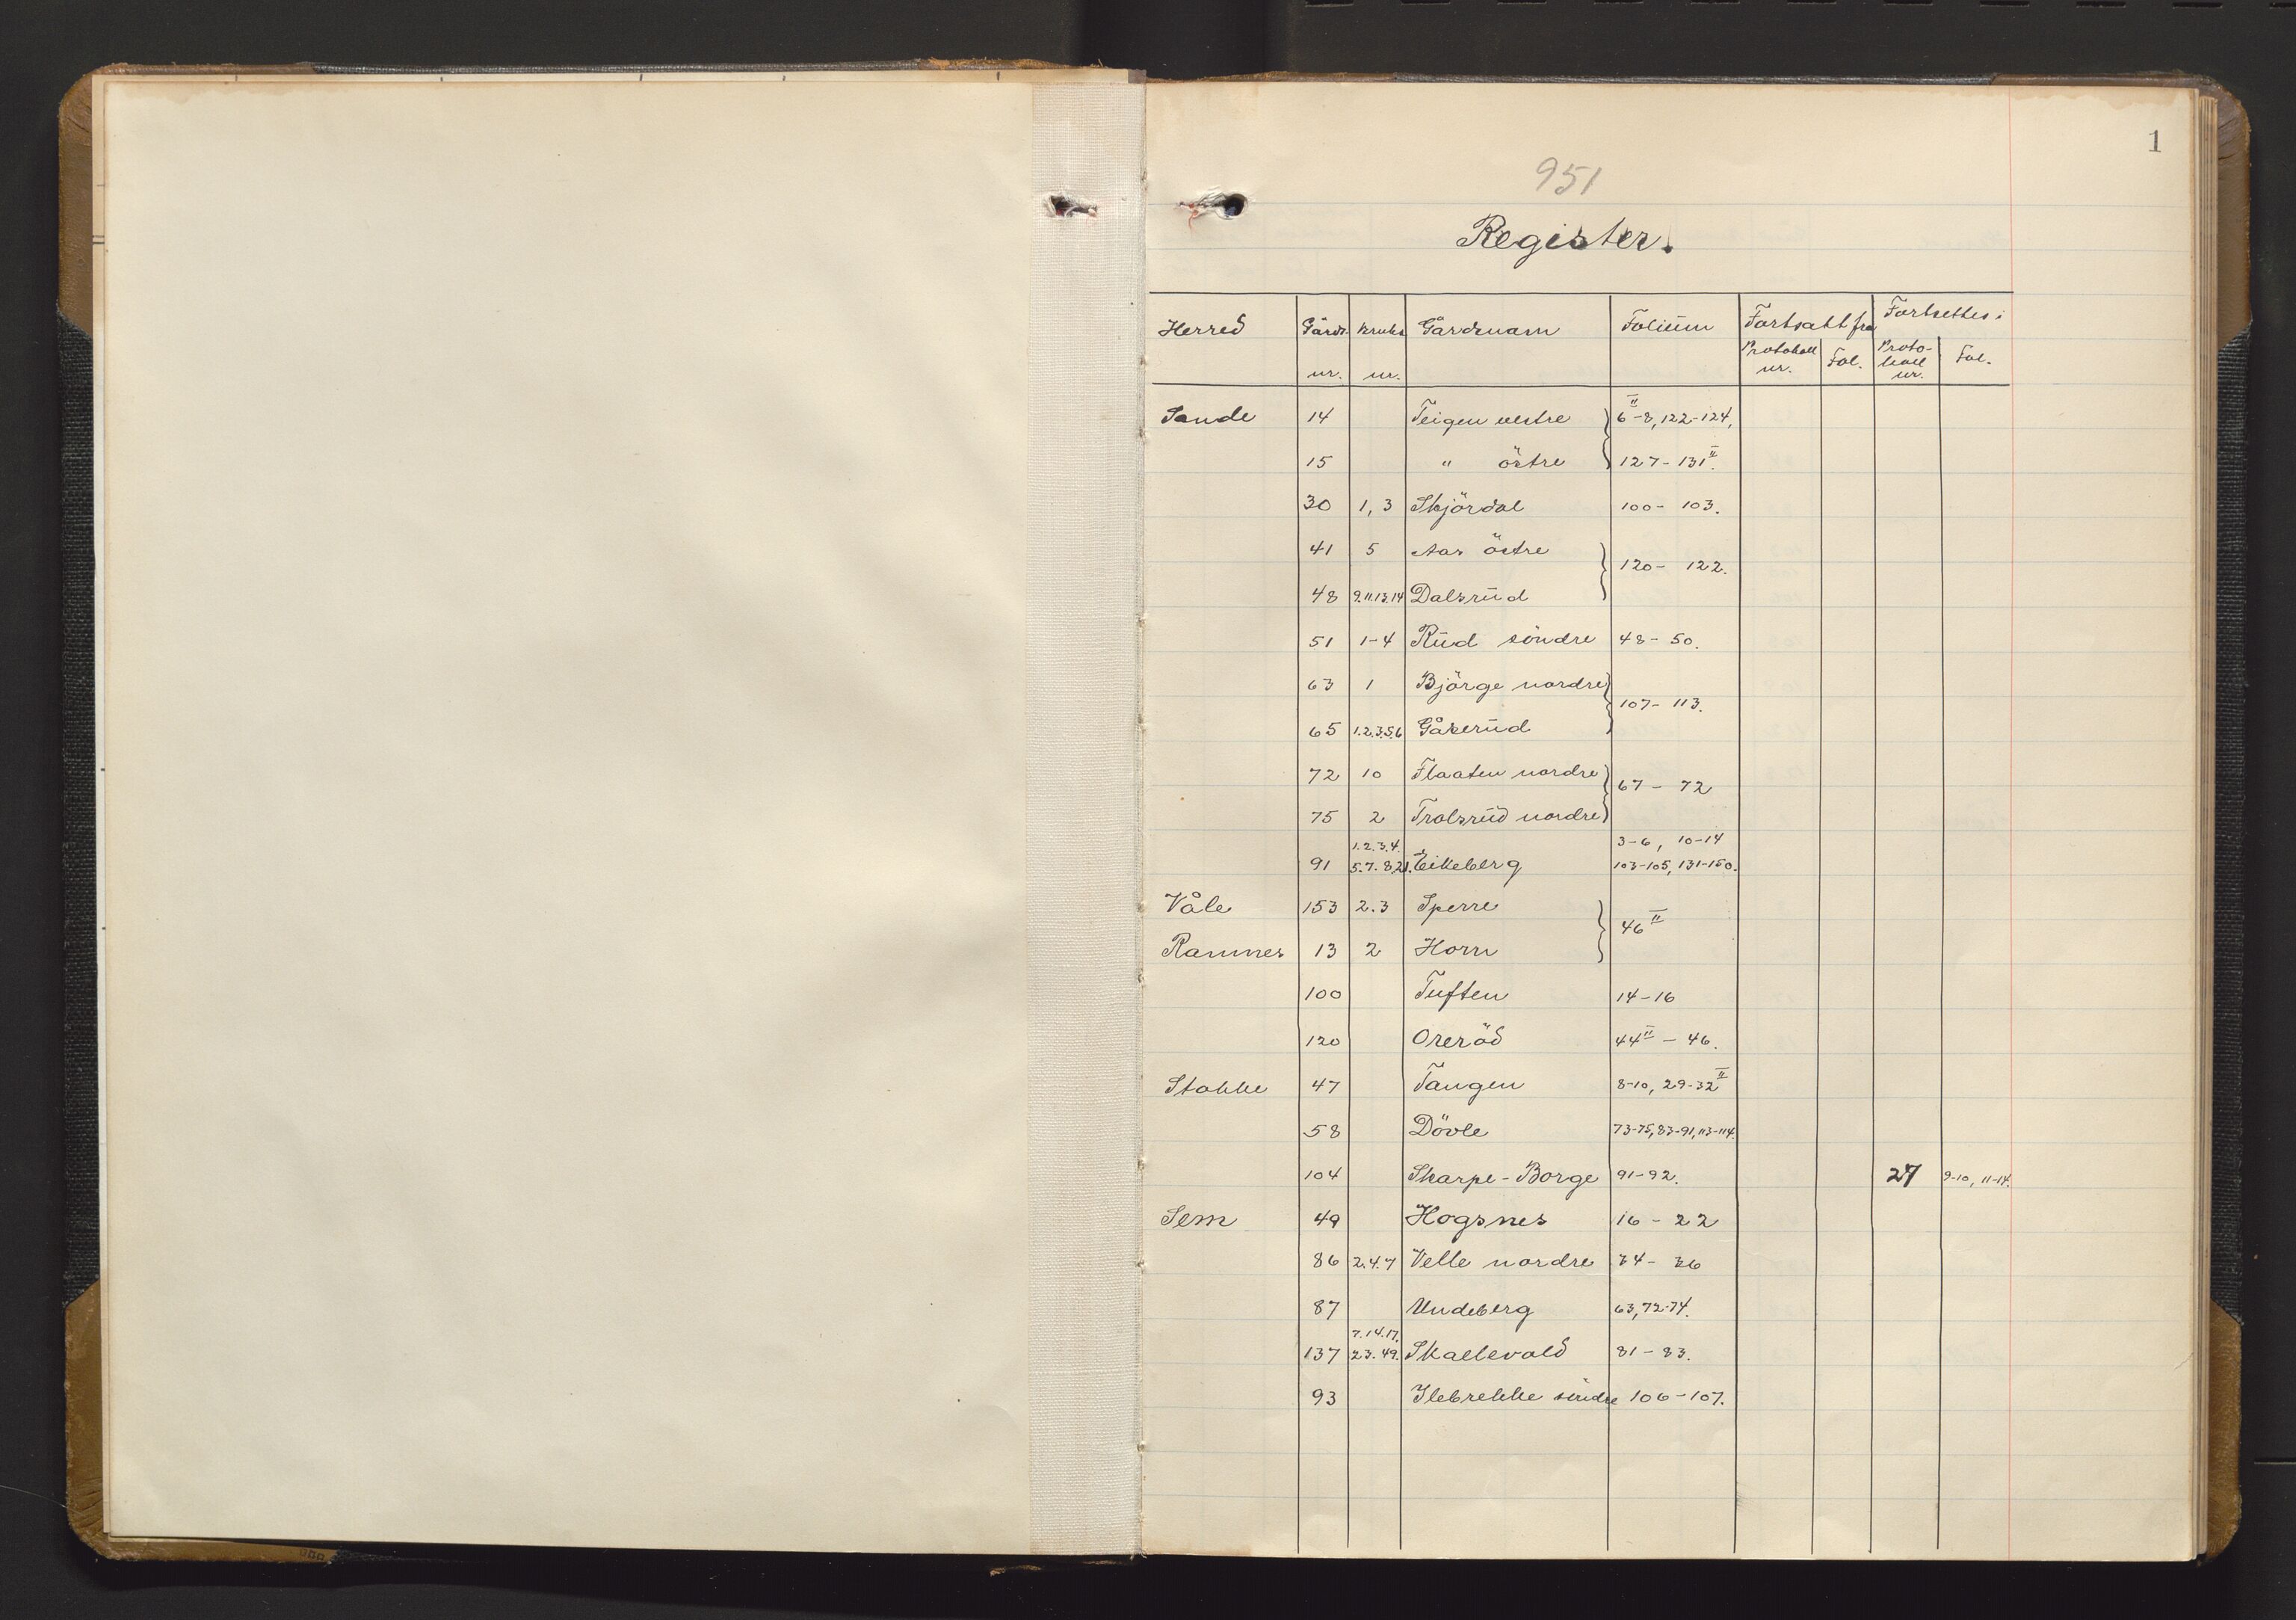 1
951
Register.
Herred Gårds nr. Bruks nr. Gårdsnavn Folium Fortsatt fra Fortsettes i
Protokoll nr. Fol. Protokoll nr. Fol.
Sande 14 Teigen vestre 6 II-8, 122-124,
15 " östre 127-131 II.
30 1, 3 Skjördal 100-103.
41 5 Aas östre 120-122.
48 9.11.13.14 Dalsrud
51 1-4 Rud söndre 48-50.
63 1 Bjørge nordre 107-113.
65 1.2.3.5.6 Gåserud
72 10 Flaaten nordre 67-72
75 2 Trolsrud nordre
1.2.3.4. 3-6, 10-14
91 5.7.8.21. Eikeberg 103-105, 131-150.
Våle 153 2.3 Sperre 46 II
Ramnes 13 2 Horn
100 Tuften 14-16
120 Oreröd 44 II-46.
Stokke 47 Tangen 8-10, 29-32 II
58 Dövle 73-75, 83-91, 113-114.
104 Skarpe-Borge 91-92. 27 9-10, 11-14.
Sem 49 Hogsnes 16-22
86 2.4.7 Velle nordre 34-36
87 Undeberg 63, 72-74.
7.14.17.
137 23.49. Skallevold 81-83.
93 Ilebrekke söndre 106-107.